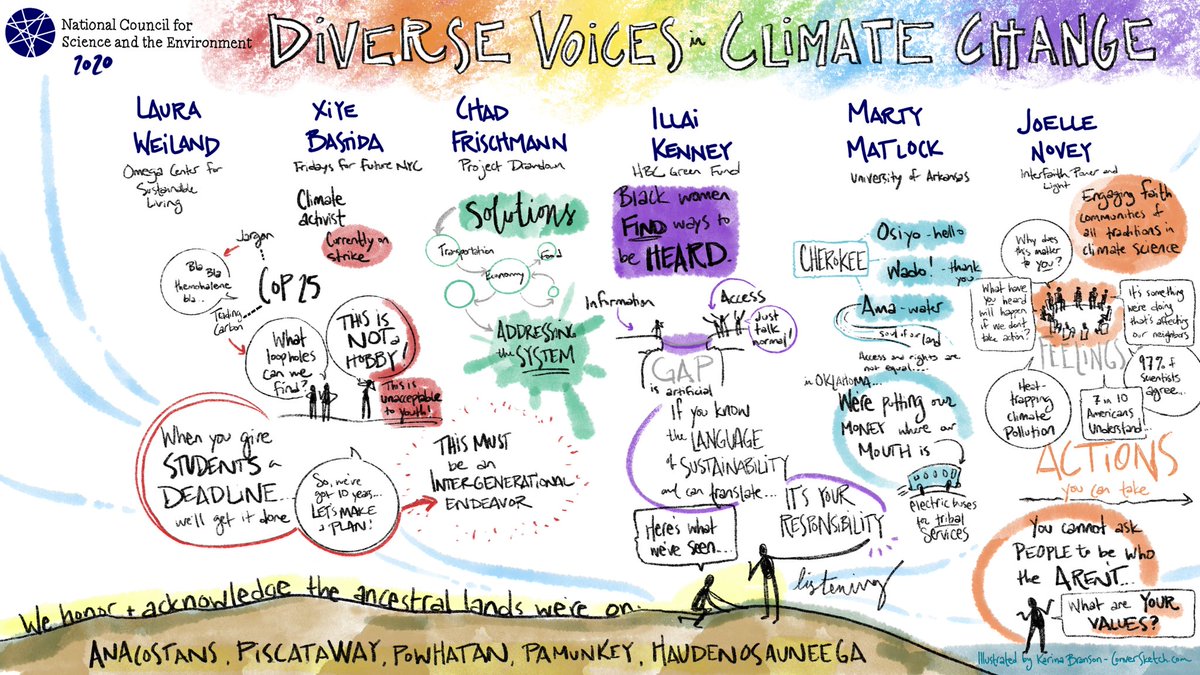 National Council for
Science and the Environment
2020
DiVERSE VOiCES in CLiMATE CHANGE
LAURA
WEiLAND
Omega Center for
Sustainable
Living
Jargon
Bla Bla
themohalene
bla...
COP 25
Trading
Carbon
XiYE
BASTiDA
Fridays for Future NYC
Climate
activist
Currently on
strike
What
loopholes
can we
find?
THIS IS
NOT a
HOBBY!
This is
unacceptable
to youth!
When you give
STUDENTS a
DEADLINE...
we'll get it done
So, we've
got 10 years...
LET'S MAKE
a PLAN!
THIS MUST
be an
INTERGENERATIONAL
ENDEAVOR
CHAD
FRISCHMANN
Project Drawdown
Solutions
Transportation
Food
Economy
ADDRESSING
the SYSTEM
ILLAi
KENNEY
HBC Green Fund
Black women
FIND ways to
be HEARD.
Information
Access
Just
talk
normal!
GAP
is artificial
If you know
the LANGUAGE
of SUSTAINABILITY
and can translate...
IT'S YOUR
RESPONSIBILITY
Here's what
we've seen...
listening
MARTY
MATLOCK
University of Arkansas
CHEROKEE
Osiyo - hello
Wado! - thank
you
Ama - water
soul of our land
Access and rights are
not equal...
in OKLAHOMA...
We're putting our
MONEY where our
MOUTH is
electric buses
for tribal
Services
JOELLE
NOVEY
Interfaith Power and
Light
Engaging faith
communities of
all traditions in
climate science
Why does
this matter
to you?
What have
you heard
will happen
if we don't
take action?
It's something
we're doing
that's affecting
our neighbors
FEELINGS
Heat-
trapping
climate
Pollution
7 in 10
Americans
Understand...
97% of
Scientists
agree...
ACTIONS
you can take
You cannot ask
PEOPLE to be who
the AREN'T...
What are YOUR
VALUES?
We honor + acknowledge the ancestral lands we're on:
ANACOSTANS, PiSCATAWAY, POWHATAN, PAMUNKEY, HAUDENOSAUNEEGA
Illustrated by Karina Branson - ConverSketch.com